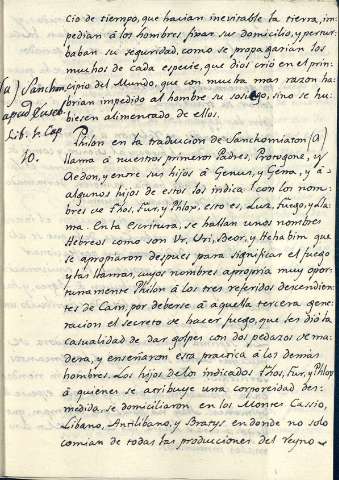 cio de tiempo, que havian inevitable la tierra, im=
pedian à los hombres fixar sus domicilio, y pertur=
baban su seguridad, como se propagarian los
muchos de cada especie, que dios crió en el prin=
cipio del Mundo, que con muestra mas razon ha=
brian impedido al hombre su sosiego, sino se hu=
biesen alimentado de ellos.
(a) Sanchon
apud Euseb
Lib. 1. Cap
10.
Philon en la traducion de Sanchoniaton (a)
llama à nuestros primeros Padres, Protogone, y
Aedon, y entre sus hijos à Genus, y Gena, y à
algunos hijos de estos los indica con los nom=
bres de Fhos, Fur, y Phlox, esto es, Luz, fuego, y lla=
ma. En la Escritura, se hallan unos nombres
Hebreos como son Ur, Uri, Beor, y Hehabim que
se apropiaron despues para significar el fuego
y las llamas, cuyos nombres apropria muy opor=
tunamente Philon à los tres referidos descendien=
tes de Cain, por deberse à aquella tercera gene=
racion el secreto de hacer fuego, que les dió la
casualidad de dar golpes con dos pedazos de ma=
dera, y enseñaron esta practica à los demás
hombres. Los hijos de los indicados Fhos, Fur, y Phlox
à quienes se atribuye una corporeidad des=
medida, se domiciliaron en los Montes Cassio,
Libano, Antilibano, y Bratys en donde no solo
comian de todas las producciones del Reyno